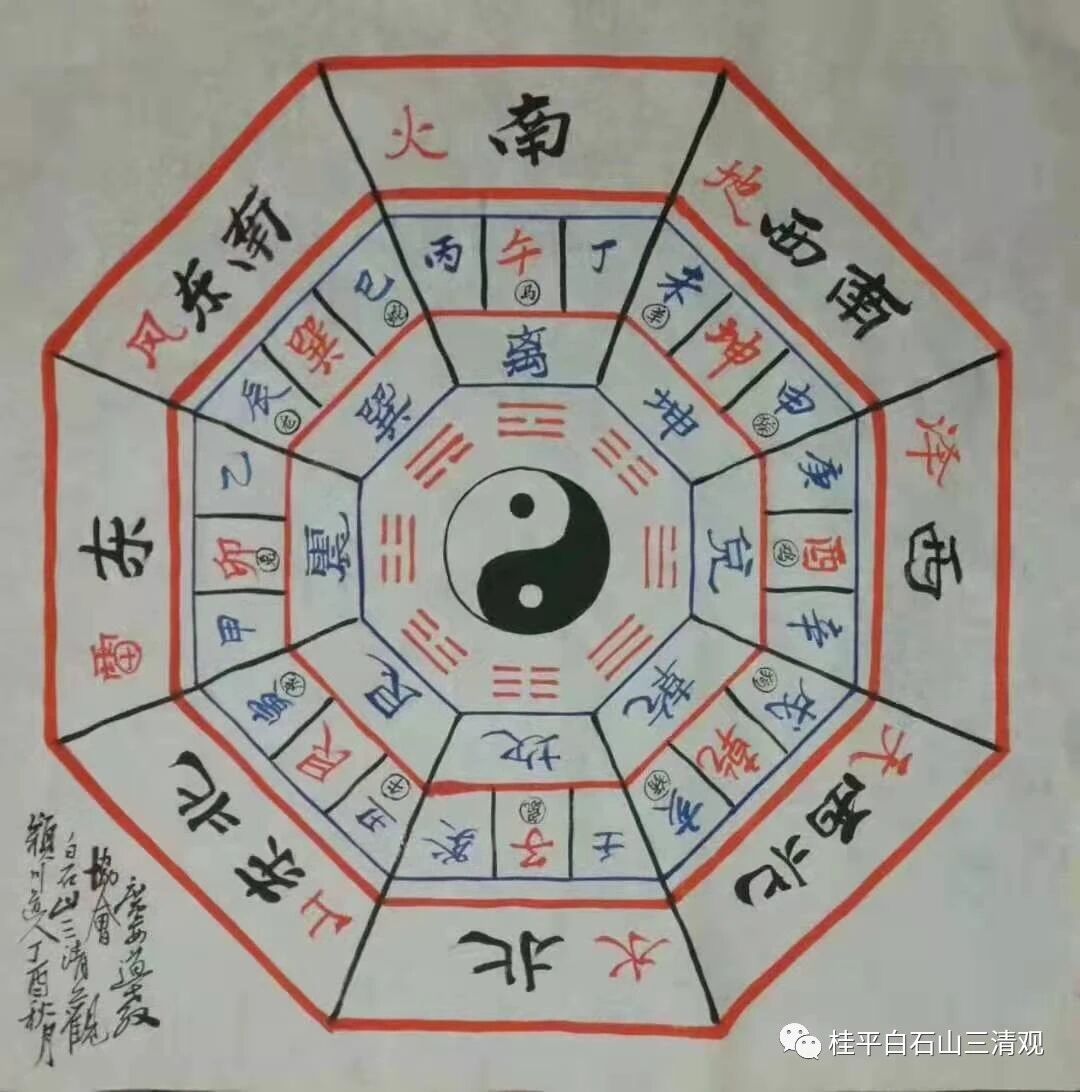 火 南
地 西南
泽 西
天 西北
水 北
山 东北
雷 东
风 东南
丙 午 丁
马
未 坤 申
羊 猴
庚 酉 辛
鸡
戌 乾 亥
狗 猪
壬 子 癸
鼠
丑 艮 寅
牛 虎
甲 卯 乙
兔
辰 巽 巳
龙 蛇
离
坤
兑
乾
坎
艮
震
巽
道教
协会
白石山三清观
颖川道人丁酉秋月
桂平白石山三清观